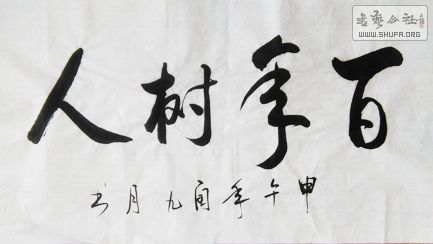 書藝公社
WWW.SHUFA.ORG
百年树人
甲午年闰九月书